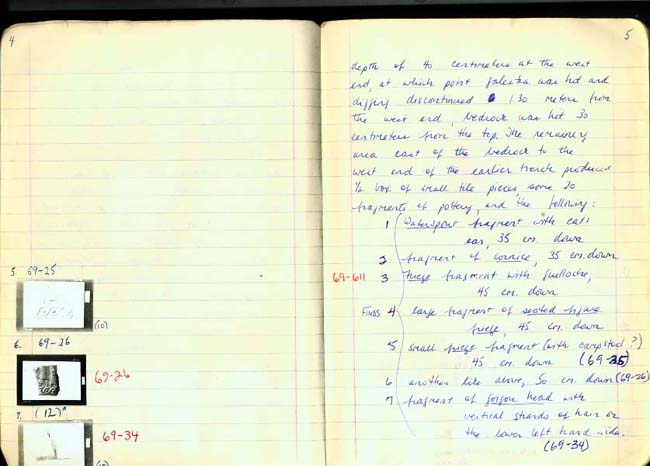 4
5. 69-25
(10)
6. 69-26
69-26
7. (12)
69-34
5
depth of 40 centimeters at the west
end, at which point galestra was hit and
digging discontinued 1.30 meters from
the west end, bedrock was hit 30
centimeters from the top. The remaining
area east of the bedrock to the
west end of the earlier trench produced
1/2 box of small tile pieces, some 20
fragments of pottery, and the following:
1 Waterspout fragment with ear, 35 cm. down
2 fragment of cornice, 35 cm. down
69-611 3 frieze fragment with guilloche,
45 cm. down
FINDS 4 large fragment of seated figure
frieze, 45 cm. down
5 small frieze fragment (with carpsted?)
45 cm. down (69-25)
6 another like above, 50 cm. down (69-26)
7 fragment of gorgon head with
vertical strands of hair on
the lower left hand side.
(69-34)